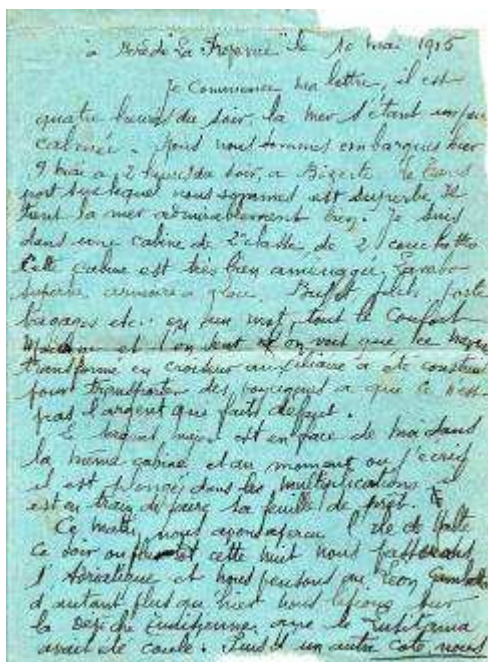 à bord de "La Provence" le 10 mai 1915
Je commence ma lettre, il est
quatre heures du soir, la mer s'étant un peu
calmée. Nous nous sommes embarqués hier
9 mai à 2 heures du soir, a Bizerte le trans
port sur lequel nous sommes est superbe, Il
tient la mer admirablement bien. Je suis
dans une cabine de 2e classe, de 2 couchettes
Cette cabine est très bien aménagée. Lavabo
superbe, armoire a glace, Buffet, filets, porte
bagages etc. en un mot, tout le confort
moderne et l'on sent et on voit que ce navire
transformé en croiseur auxiliaire a été construit
pour transporter des voyageurs a que ce n'est
pas l'argent qui faits défaut.
Le sergent major est en face de moi dans
la même cabine et au moment ou j'écris
il est plongé dans les multiplications, il
est en train de faire sa feuille de prêt.
Ce matin, nous avons aperçu l'île de Malte
ce soir ou cette nuit nous passerons
l'Adriatique et nous pensons au Léon Gambetta
d'autant plus que hier nous lisions sur
la Dépêche tunisienne, que le Lusitania
avait été coulé. Puis d'un autre côté nous